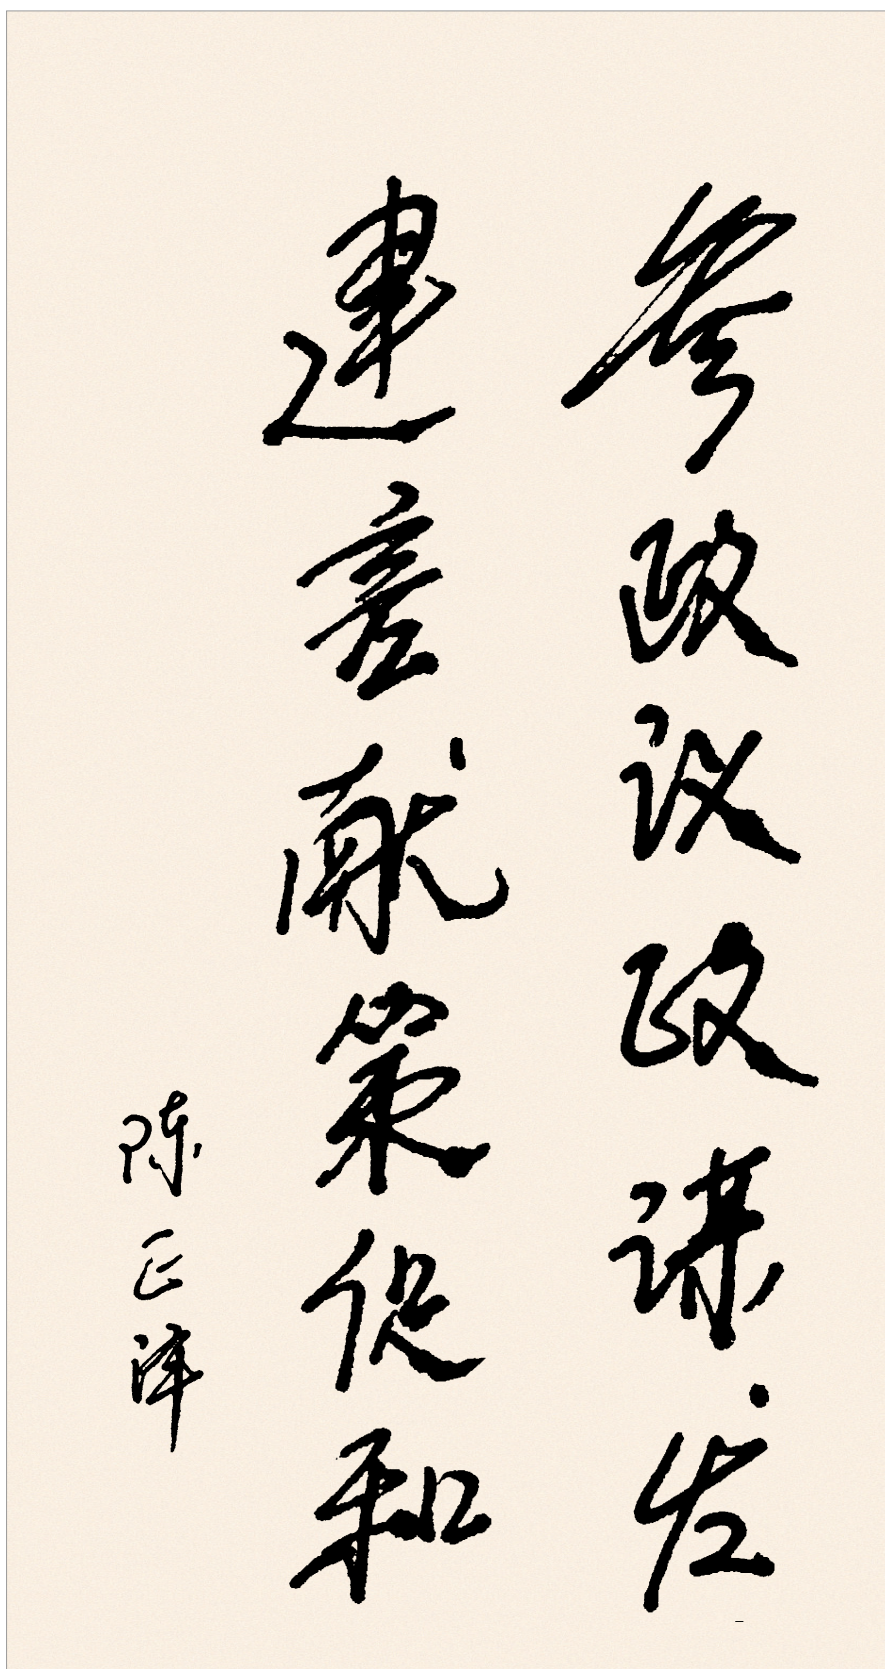 参政议政谋发
建言献策促和
陈正泽